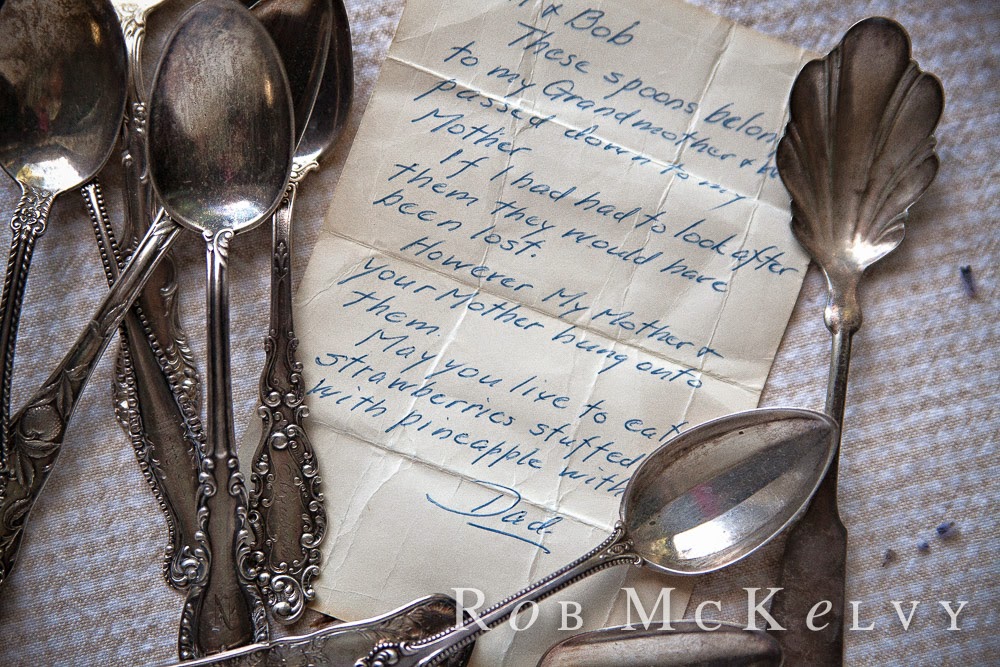 & Bob
These spoons belon
to my Grandmother &
passed down to my
Mother
If I had had to look after
them they would have
been lost.
However My Mother &
your Mother hung onto
them
May you live to eat
strawberries stuffed
with pineapple with
Dad
ROB MCKELVY